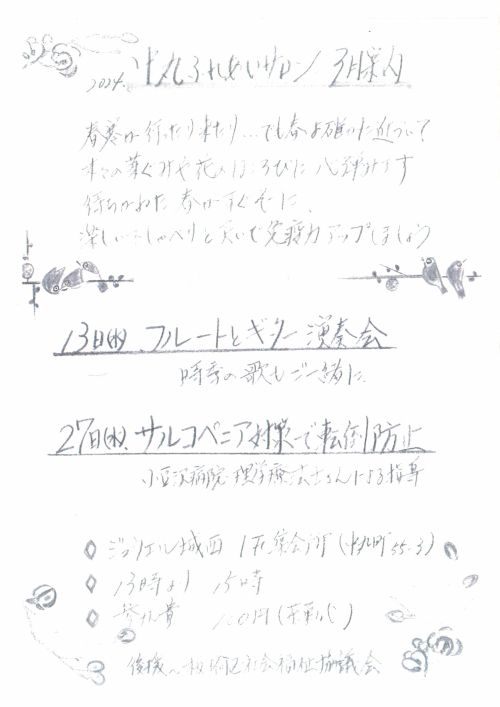 2024. ふれあいサロン 3月案内
春寒が行ったり来たり…でも春は確かに近づいて
木々の芽ぐみや花のほころびに心弾みます
待ちかねた春がすぐそこに、
楽しいおしゃべりと笑いで免疫力アップしましょう
13日(水) フルートとギター演奏会
時季の歌もご一緒に、
27日(水) サルコペニア対策で転倒防止
小豆沢病院 理学療法士さんによる指導
◇ ジョリエル城西 1F集会所 (55-3)
◇ 13時より 15時
◇ 参加費 100円 (茶菓)
後援 板橋区社会福祉協議会